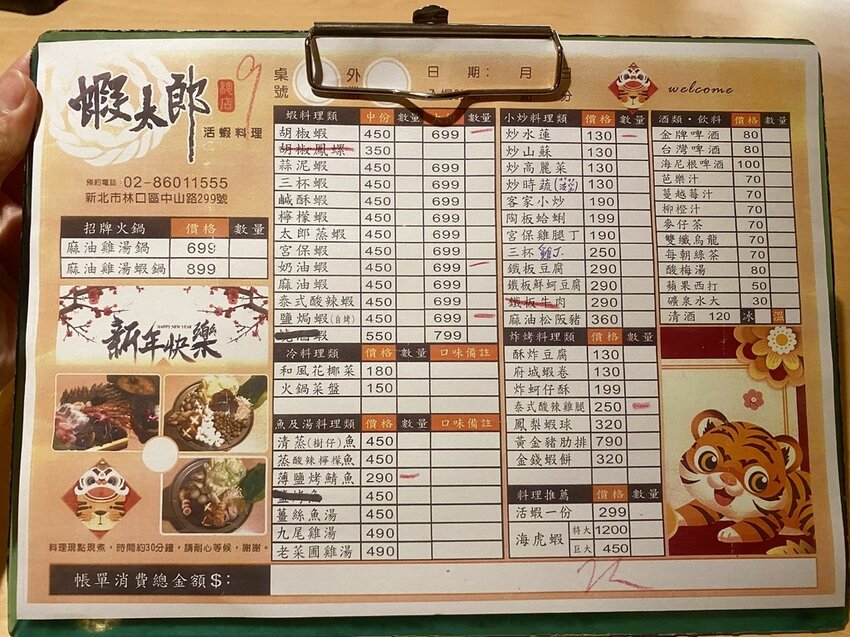 蝦太郎
總店
活蝦料理
預約電話:02-86011555
新北市林口區中山路299號
招牌火鍋 價格 數量
麻油雞湯鍋 699
麻油雞湯蝦鍋 899
HAPPY NEW YEAR
新年快樂
料理現點現煮,時間約30分鐘,請耐心等候,謝謝。
桌號 外 日期: 月
蝦料理類 中份 數量
胡椒蝦 450 699
胡椒鳳螺 350
蒜泥蝦 450 699
三杯蝦 450 699
鹹酥蝦 450 699
檸檬蝦 450 699
太郎蒸蝦 450 699
宮保蝦 450 699
奶油蝦 450 699
麻油蝦 450 699
泰式酸辣蝦 450 699
鹽焗蝦(自烤) 450 699
蝦 550 799
冷料理類 價格 數量 口味備註
和風花椰菜 180
火鍋菜盤 150
魚及湯料理類 價格 數量 口味備註
清蒸(樹仔)魚 450
蒸酸辣檸檬魚 450
薄鹽烤鯖魚 290
450
薑絲魚湯 450
九尾雞湯 490
老菜圃雞湯 490
小炒料理類 價格 數量
炒水蓮 130
炒山蘇 130
炒高麗菜 130
炒時蔬 130
客家小炒 190
陶板蛤蜊 199
宮保雞腿丁 190
三杯雞丁 250
鐵板豆腐 290
鐵板鮮蚵豆腐 290
鐵板牛肉 290
麻油松阪豬 360
炸烤料理類 價格 數量
酥炸豆腐 130
府城蝦卷 130
炸蚵仔酥 199
泰式酸辣雞腿 250
鳳梨蝦球 320
黃金豬肋排 790
金錢蝦餅 320
料理推薦 價格 數量
活蝦一份 299
海虎蝦 特大 1200
巨大 450
welcome
酒類・飲料 價格 數量
金牌啤酒 80
台灣啤酒 80
海尼根啤酒 100
芭樂汁 70
蔓越莓汁 70
柳橙汁 70
麥仔茶 70
雙纖烏龍 70
每朝綠茶 70
酸梅湯 80
蘋果西打 50
礦泉水大 30
清酒 120 冰 溫
帳單消費總金額$: